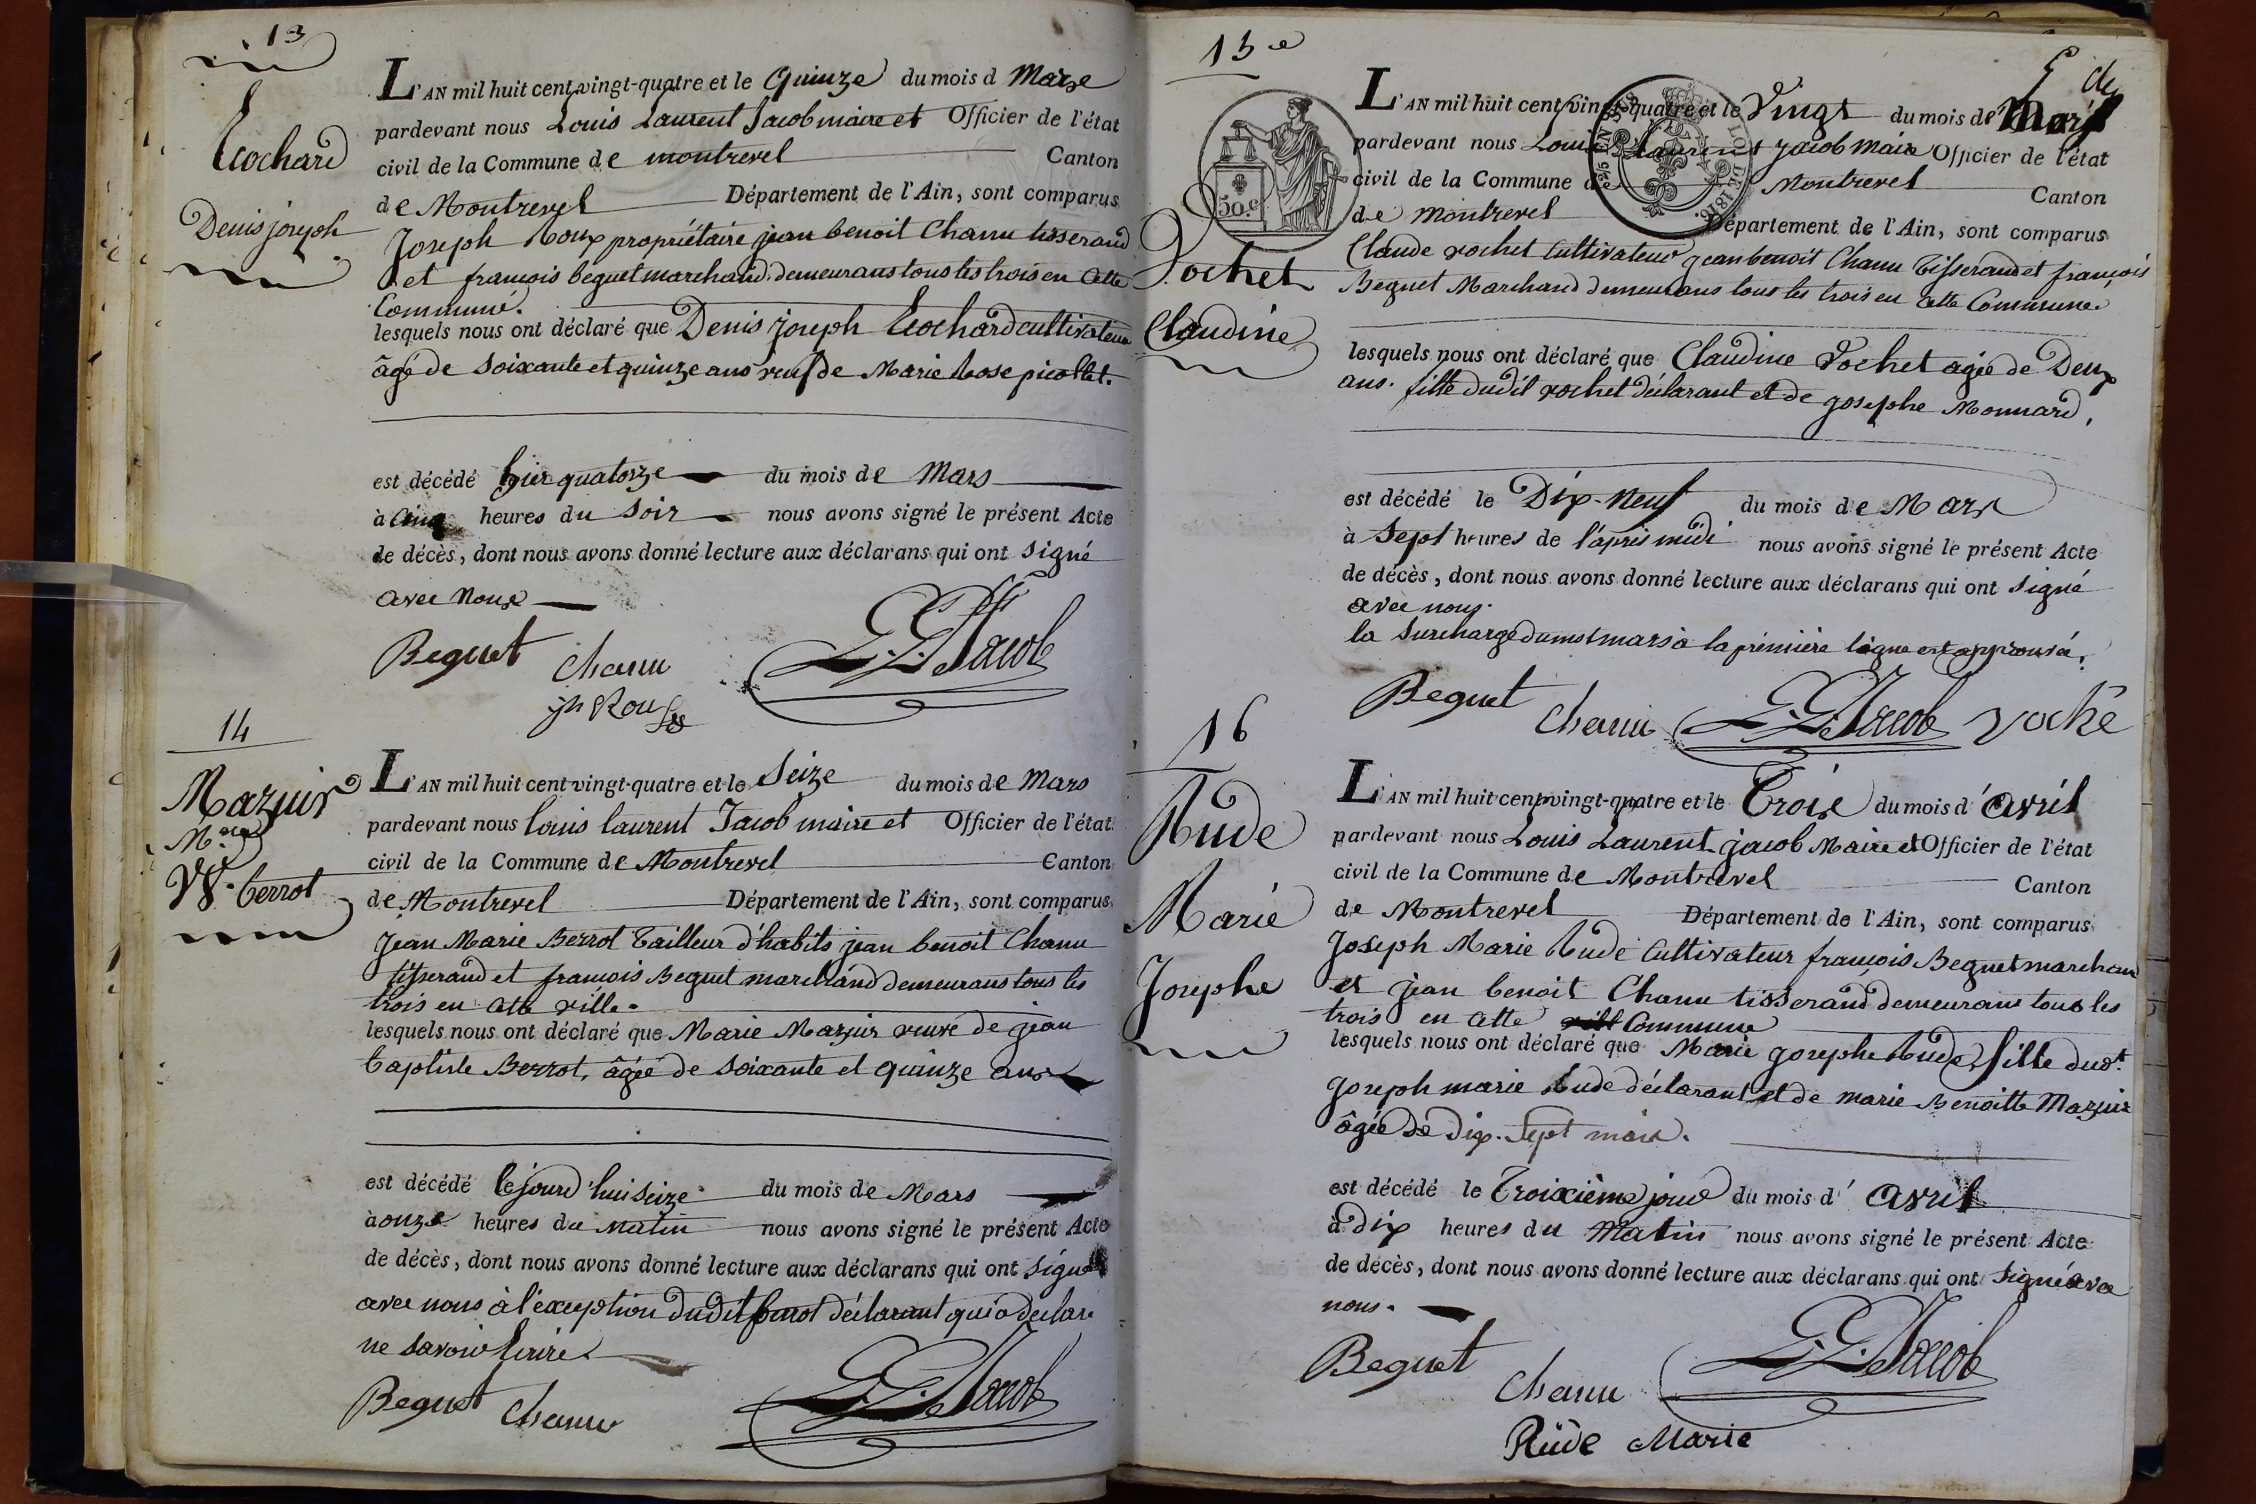 13
Ecochard
Denis joseph
L'AN mil huit cent vingt-quatre et le quinze du mois d Mars
pardevant nous Louis Laurent Jacob maire et Officier de l'état
civil de la Commune de montrevel Canton
de Montrevel Département de l'Ain, sont comparus
Joseph Roux propriétaire jean benoit Chanu tisserand
et françois beguet marchand demeurans tous les trois en cette
Commune.
lesquels nous ont déclaré que Denis joseph Ecochard cultivateur
âgé de soixante et quinze ans veuf de Marie Rose picollet.
est décédé hier quatorze du mois de Mars
à cinq heures du soir nous avons signé le présent Acte
de décès, dont nous avons donné lecture aux déclarans qui ont signé
avec nous
Beguet Chanu L. L. Jacob
jh Roux
14
Mazuir
Mie
Ve. berrot
L'AN mil huit cent vingt-quatre et le Seize du mois de Mars
pardevant nous louis laurent Jacob maire et Officier de l'état
civil de la Commune de Montrevel Canton
de Montrevel Département de l'Ain, sont comparus
Jean Marie Berrot Tailleur d'habits jean benoit Chanu
tisserand et françois Beguet marchand demeurans tous les
trois en cette ville.
lesquels nous ont déclaré que Marie Mazuir veuve de jean
baptiste Berrot, âgée de soixante et quinze ans
est décédé cejourd'hui seize du mois de Mars
à onze heures du matin nous avons signé le présent Acte
de décès, dont nous avons donné lecture aux déclarans qui ont signé
avec nous à l'exception dudit berrot déclarant qui a déclaré
ne savoir Ecrire
Beguet Chanu L. L. Jacob
15e
5
50.c
LOI DE 1816.
Vochet
Claudine
L'AN mil huit cent vingt-quatre et le Vingt du mois de Mars
pardevant nous Louis Laurent Jacob Maire Officier de l'état
civil de la Commune de Montrevel Canton
de Montrevel Département de l'Ain, sont comparus
Claude vochet Cultivateur jean benoit Chanu Tisserand et françois
Beguet Marchand demeurans tous les trois en cette Commune.
lesquels nous ont déclaré que Claudine Vochet agée de Deux
ans. fille dudit vochet déclarant et de josephe Monnard,
est décédé le Dix-Neuf du mois de Mars
à Sept heures de l'après midi nous avons signé le présent Acte
de décès, dont nous avons donné lecture aux déclarans qui ont signé
avec nous.
la surcharge du mot mars à la première ligne est approuvée,
Beguet Chanu L. L. Jacob voché
16
Rude
Marie
Josephe
L'AN mil huit cent vingt-quatre et le Trois du mois d' avril
pardevant nous Louis Laurent jacob Maire et Officier de l'état
civil de la Commune de Montrevel Canton
de Montrevel Département de l'Ain, sont comparus
Joseph Marie Rude Cultivateur françois Beguet marchand
et jean benoit Chanu tisserand demeurans tous les
trois en cette ville Commune
lesquels nous ont déclaré que Marie josephe Rude fille dudt.
Joseph marie Rude déclarant et de marie Benoitte Mazuir
âgée de dix-sept mois.
est décédé le Troixième jour du mois d' avril
à dix heures du Matin nous avons signé le présent Acte
de décès, dont nous avons donné lecture aux déclarans qui ont signé avec
nous.
Beguet Chanu L. L. Jacob
Rüde Marie